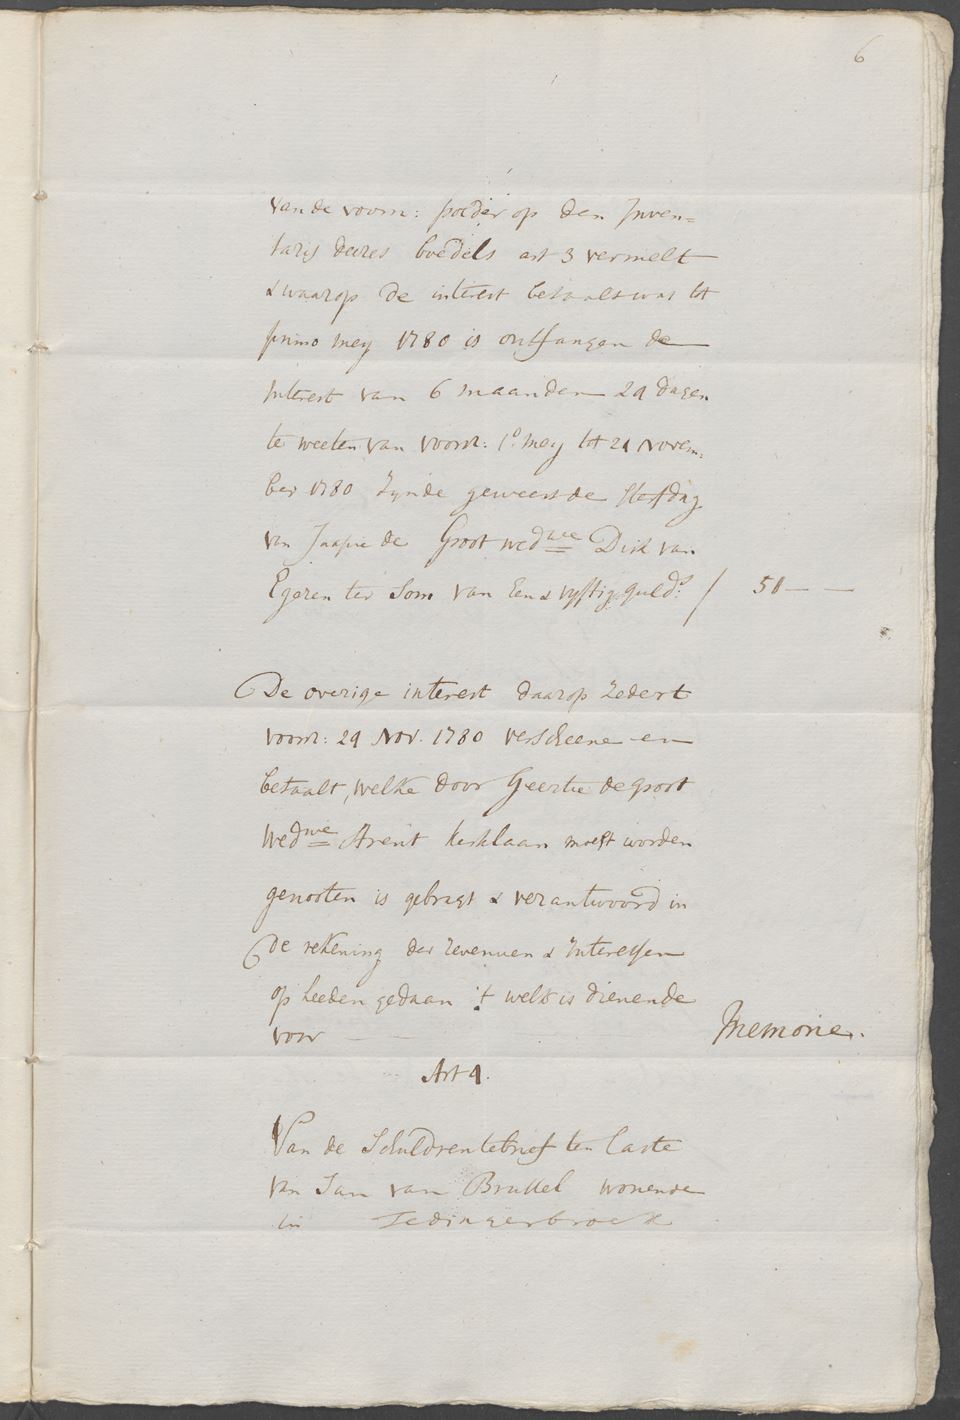 6
van de voorn: polder op den Inven=
taris deeses boedels art 3 vermelt
& waarop de interest betaalt was tot
primo mey 1780 is ontfangen de
Interest van 6 maanden 29 dagen
te weeten van voorn: 1o. mey tot 29 Novem:
ber 1780 Zynde geweest de sterfdag
van Jaapie de Groot wedwee Dirk van
Egeren ter Som van Een & vyftig guld:s / 51 — —
De overige interest daarop zedert
voorn: 29 Nov. 1780 verscheene en
betaalt, welke door Geertie de Groot
Wedwe Arent Kerklaan moest worden
genooten is gebragt & verantwoord in
De rekening der revenuen & Interessen
op heeden gedaan 't welk is dienende
voor — — Memorie.
Art 4.
Van de Schuldrentebrief ten laste
van Jan van Brukel wonende
in Jedingerbroek